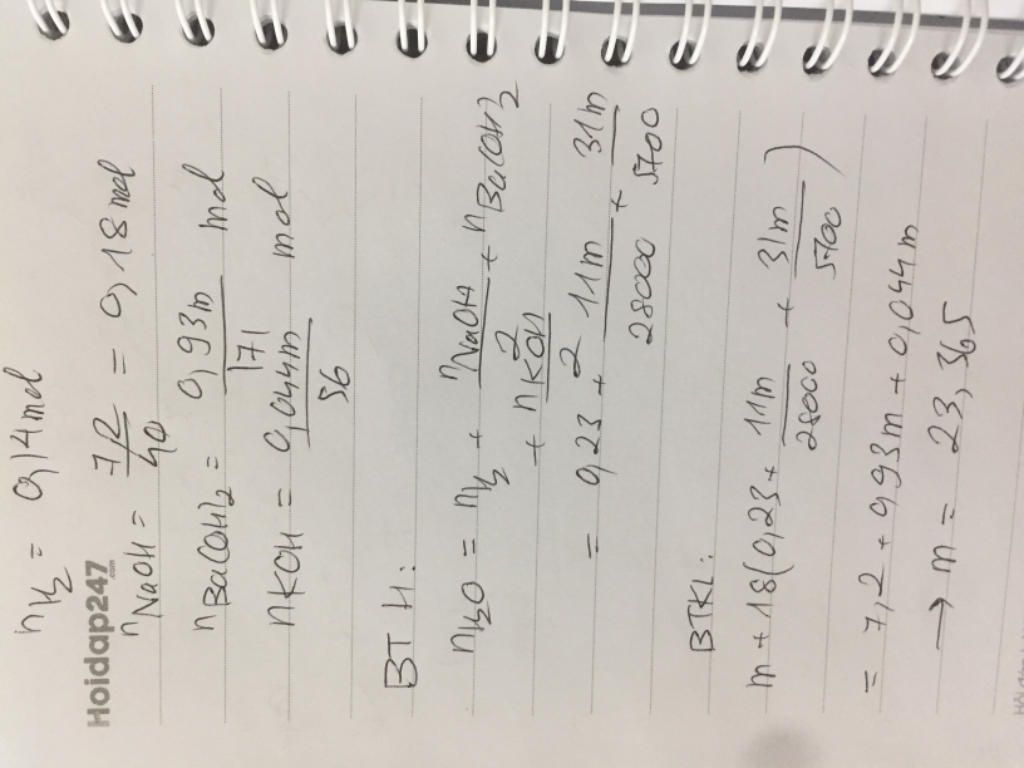 nH2 = 0,14 mol
Hoidap247.com
nNaOH = 7,2/40 = 0,18 mol
nBa(OH)2 = 0,93m/171 mol
nKOH = 0,044m/56 mol
BT H:
nH2O = nH2 + nNaOH/2 + nBa(OH)2
+ nKOH/2
= 0,23 + 11m/28000 + 31m/5700
BTKL:
m + 18(0,23 + 11m/28000 + 31m/5700)
= 7,2 + 0,93m + 0,044m
→ m = 23,365